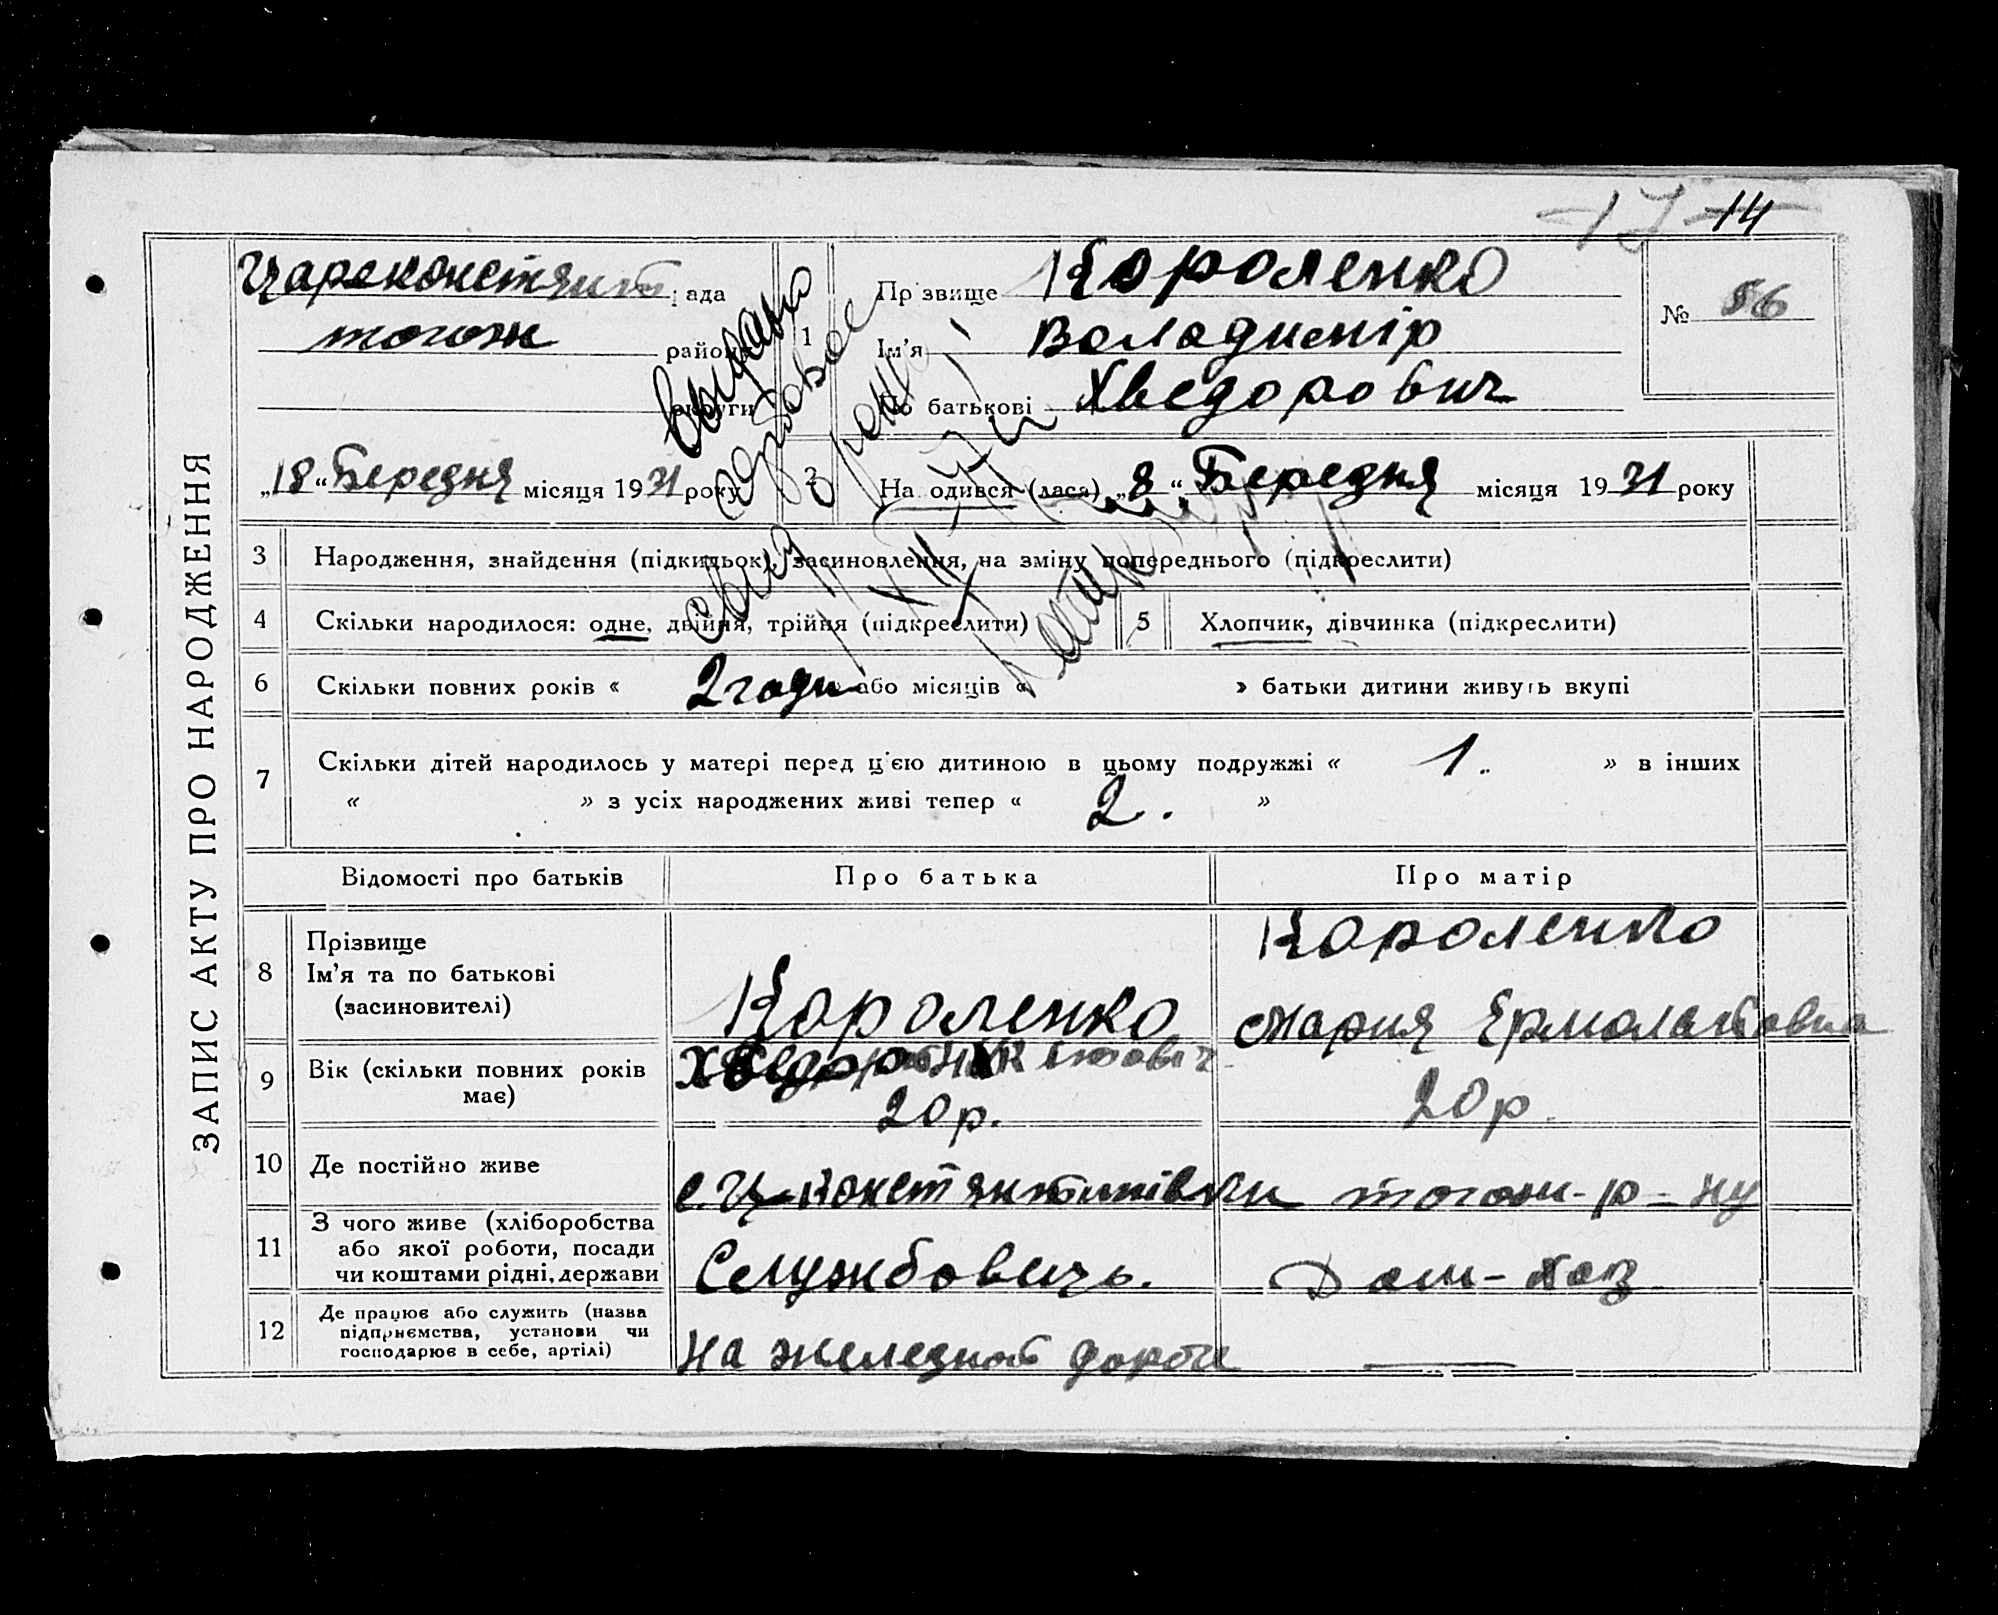 14
Цареконстянт рада
тогож району
округи
„18“ Березня місяця 1931 року
1
Прізвище Короленко
Ім’я Володимір
По батькові Хведорович
№ 56
2
На одився (лася) „8“ Березня місяця 1931 року
Выдано
ЗАПИС АКТУ ПРО НАРОДЖЕННЯ
3 Народження, знайдення (підкидьок), засиновлення, на зміну попереднього (підкреслити)
4 Скільки народилося: одне, двійня, трійня (підкреслити) 5 Хлопчик, дівчинка (підкреслити)
6 Скільки повних років « 2 годи або місяців « » батьки дитини живуть вкупі
7 Скільки дітей народилось у матері перед ц'єю дитиною в цьому подружжі « 1. » в інших
« » з усіх народжених живі тепер « 2. »
Відомості про батьків Про батька Про матір
8 Прізвище
Ім’я та по батькові
(засиновителі)
Короленко
Хведор
Короленко
Мария
9 Вік (скільки повних років
має)
20 р. 20 р.
10 Де постійно живе
тогож-р-ну
11 З чого живе (хліборобства
або якої роботи, посади
чи коштами рідні, держави
Службовичь. Дом-хоз
12 Де працює або служить (назва
підприємства, установи чи
господарює в себе, артілі)
На железной дороги —